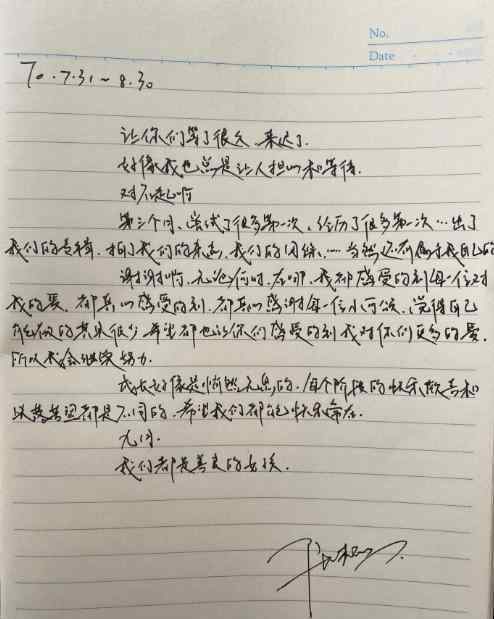 No.
Date
To. 7.31~8.30
让你们等了很久,来迟了.
好像我也总是让人担心和等待.
对不起啊
第三个月、尝试了很多第一次、经历了很多第一次…出了
我们的专辑,拍了我们的杂志,我们的团综,…当然还有属于我自己的
谢谢啊,无论何时、在哪,我都感受的到每一位对
我的爱,都真心感受的到,都真心感谢每一位小可爱,觉得自己
能做的其实很少,希望都也让你们感受的到我对你们更多的爱,
所以我会继续努力.
成长好像是悄然无息的,每个阶段的快乐
都是不同的.希望我们都能快乐常在.
无论.
我们都是善良的女孩.